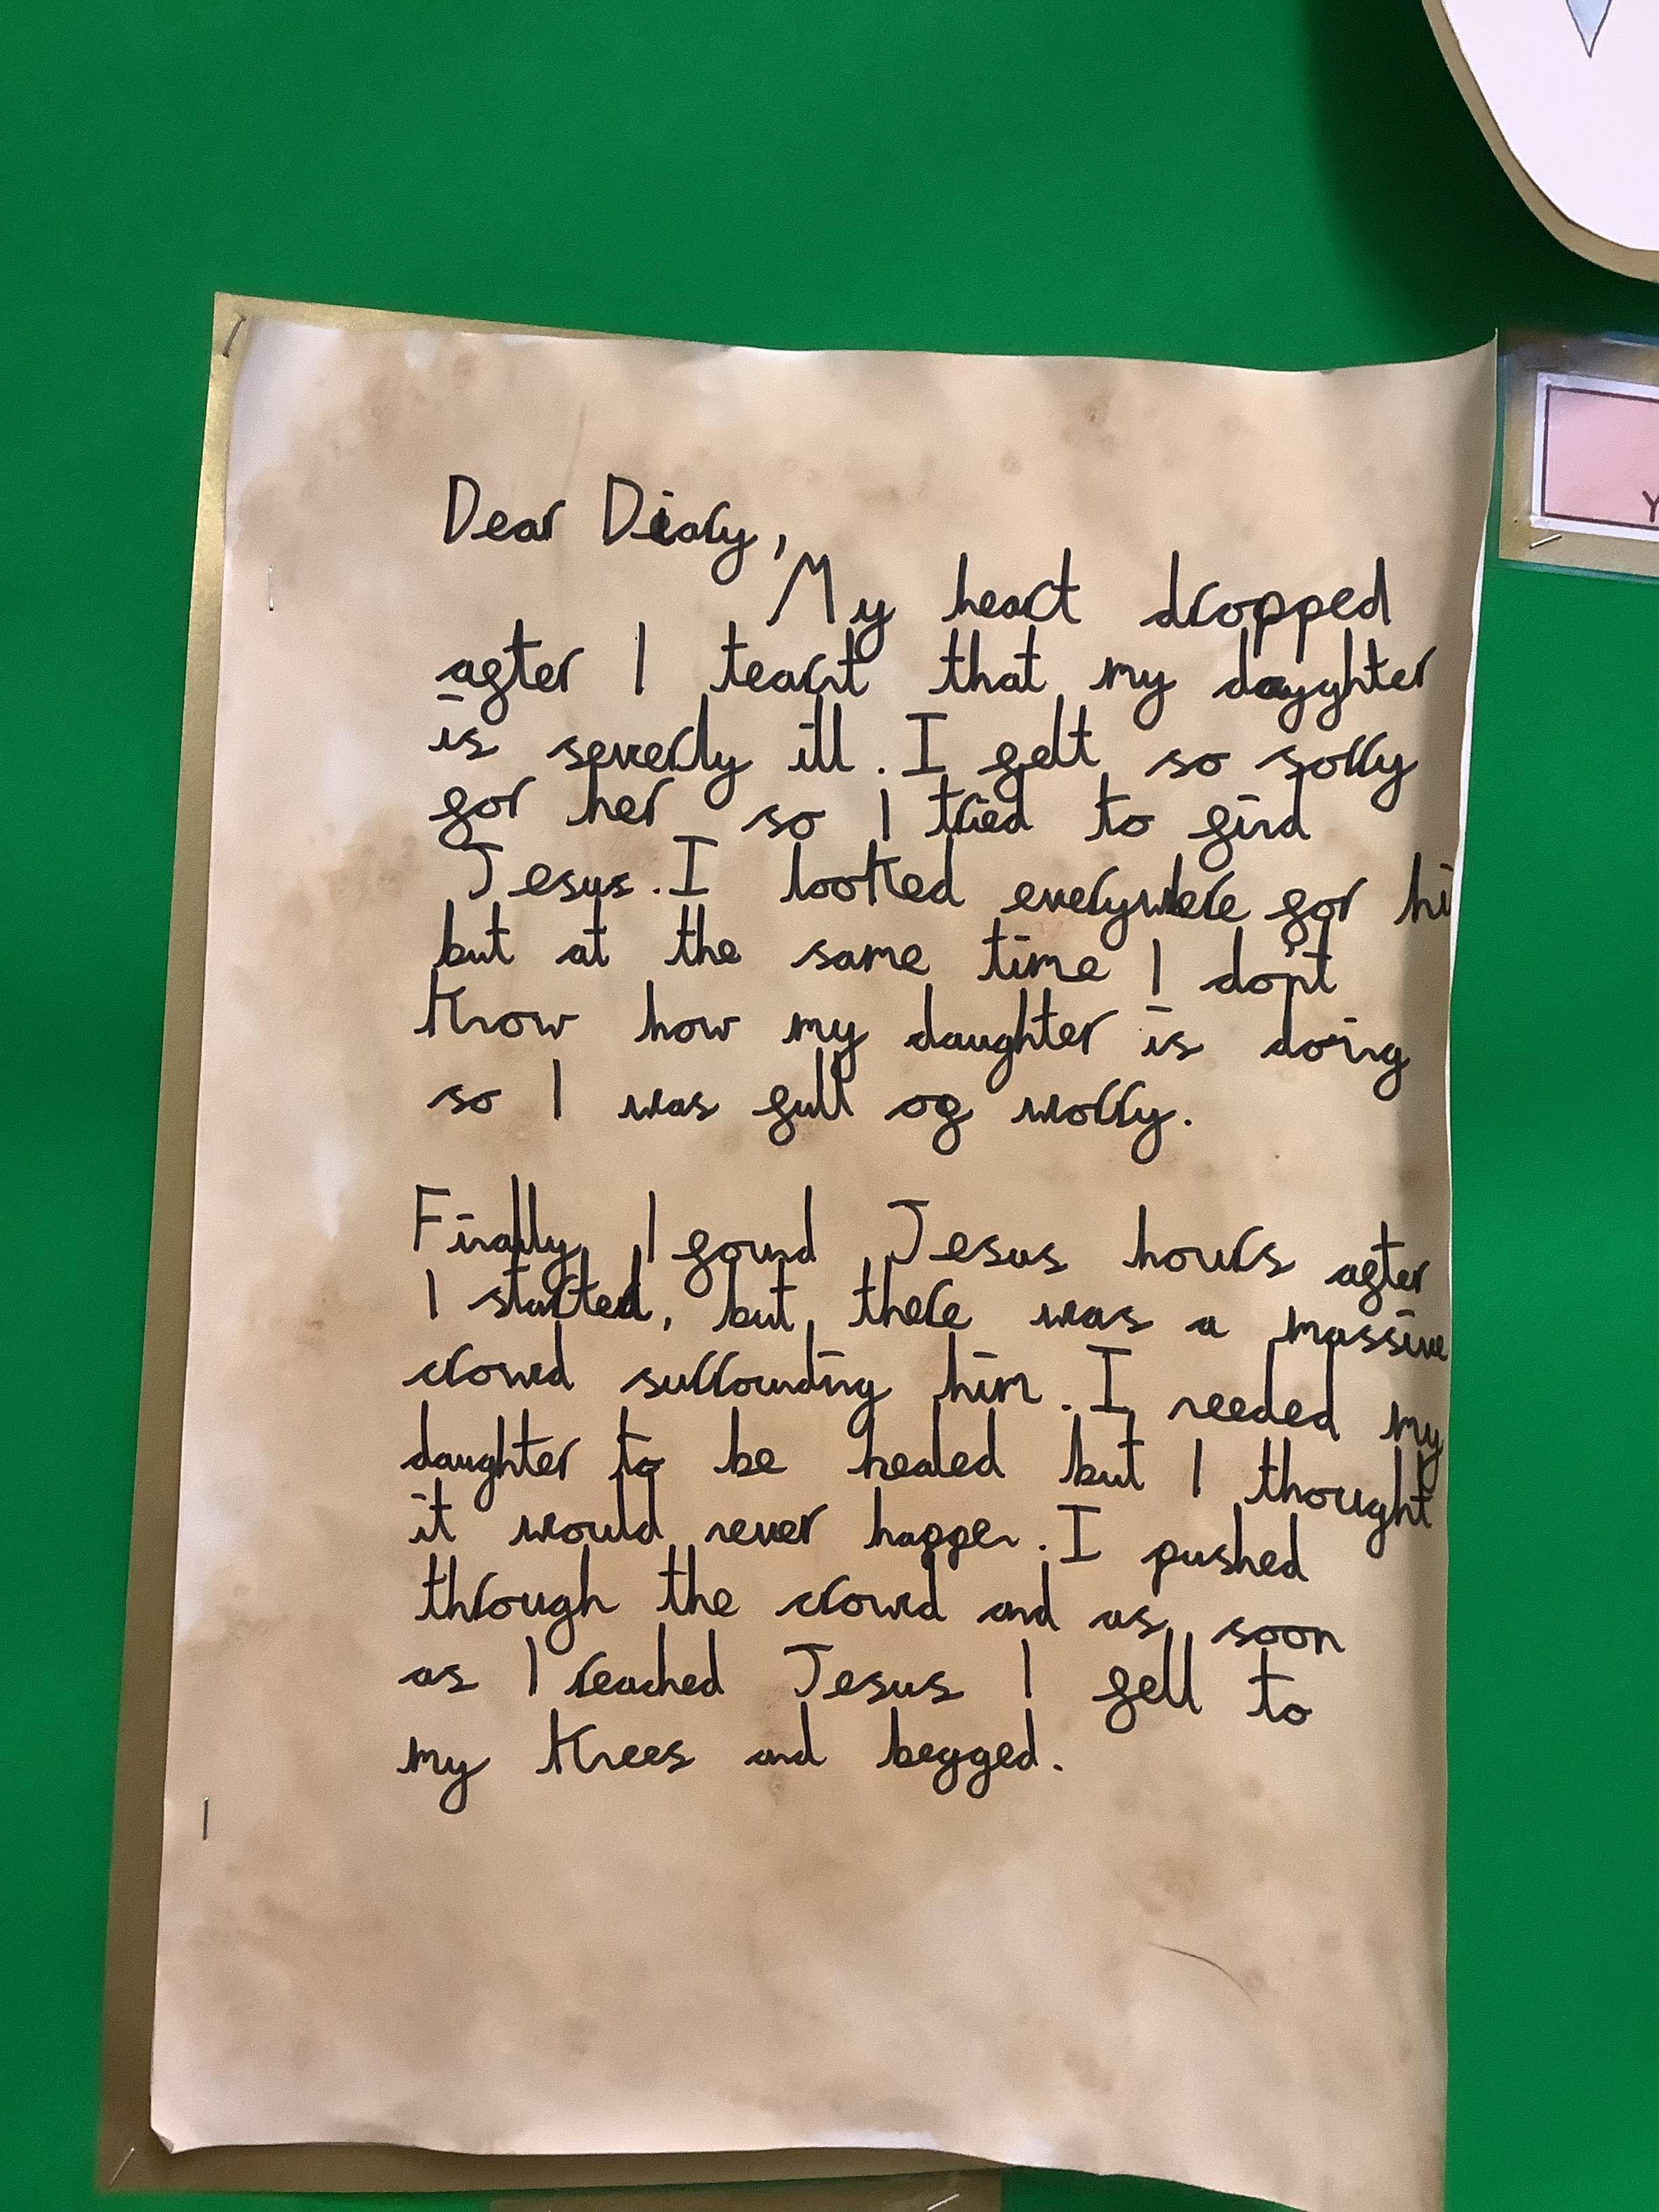 Dear Diary,
My heart dropped
after I learnt that my daughter
is severly ill. I felt so sorry
for her so I tried to find
Jesus. I looked everywhere for hi
but at the same time I don't
know how my daughter is doing
so I was full of worry.
Finally I found Jesus hours after
I started, but there was a massive
crowd surrounding him. I needed my
daughter to be healed but I thought
it would never happen. I pushed
through the crowd and as soon
as I reached Jesus I fell to
my knees and begged.
Y